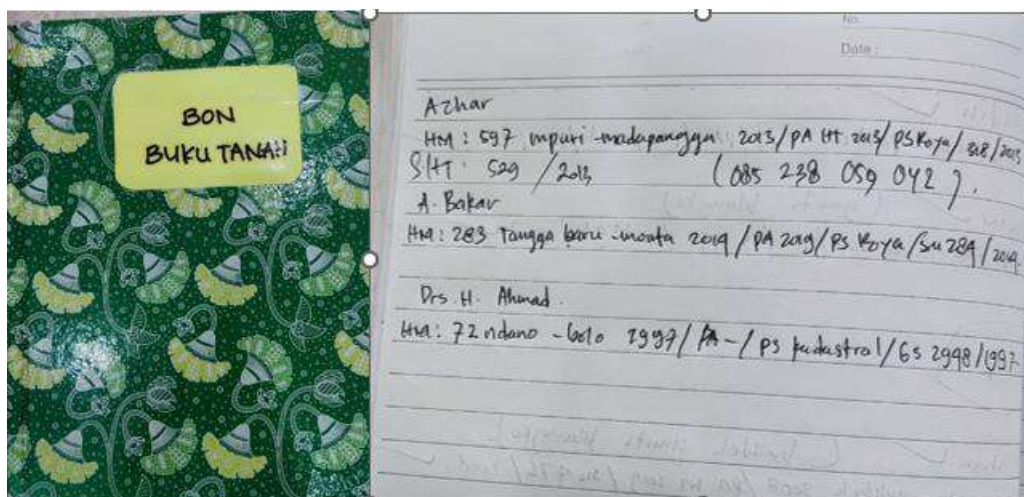 BON
BUKU TANAH
No.
Date :
Azhar
HM : 597 mpuri -madapangga 2013/PA HT 2013/PS Roya/ 318/2013
SHT : 529 /2013 (085 238 059 042).
A. Bakar
HM : 283 Tangga baru -monta 2019/PA 2019/PS Roya/Su 289/2019.
Drs H. Ahmad.
HM : 72 ndano -bolo 1997/PA -/PS kadastral/GS 2948/1997